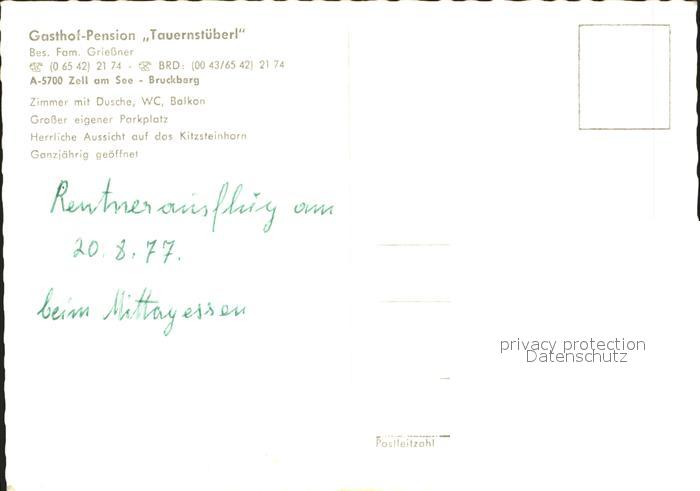 Gasthof-Pension „Tauernstüberl“
Bes. Fam. Grießner
☏ (0 65 42) 21 74 - ☏ BRD: (00 43/65 42) 21 74
A-5700 Zell am See - Bruckberg
Zimmer mit Dusche, WC, Balkon
Großer eigener Parkplatz
Herrliche Aussicht auf das Kitzsteinhorn
Ganzjährig geöffnet
Rentnerausflug am
20.8.77.
beim Mittagessen
privacy protection
Datenschutz
Postleitzahl